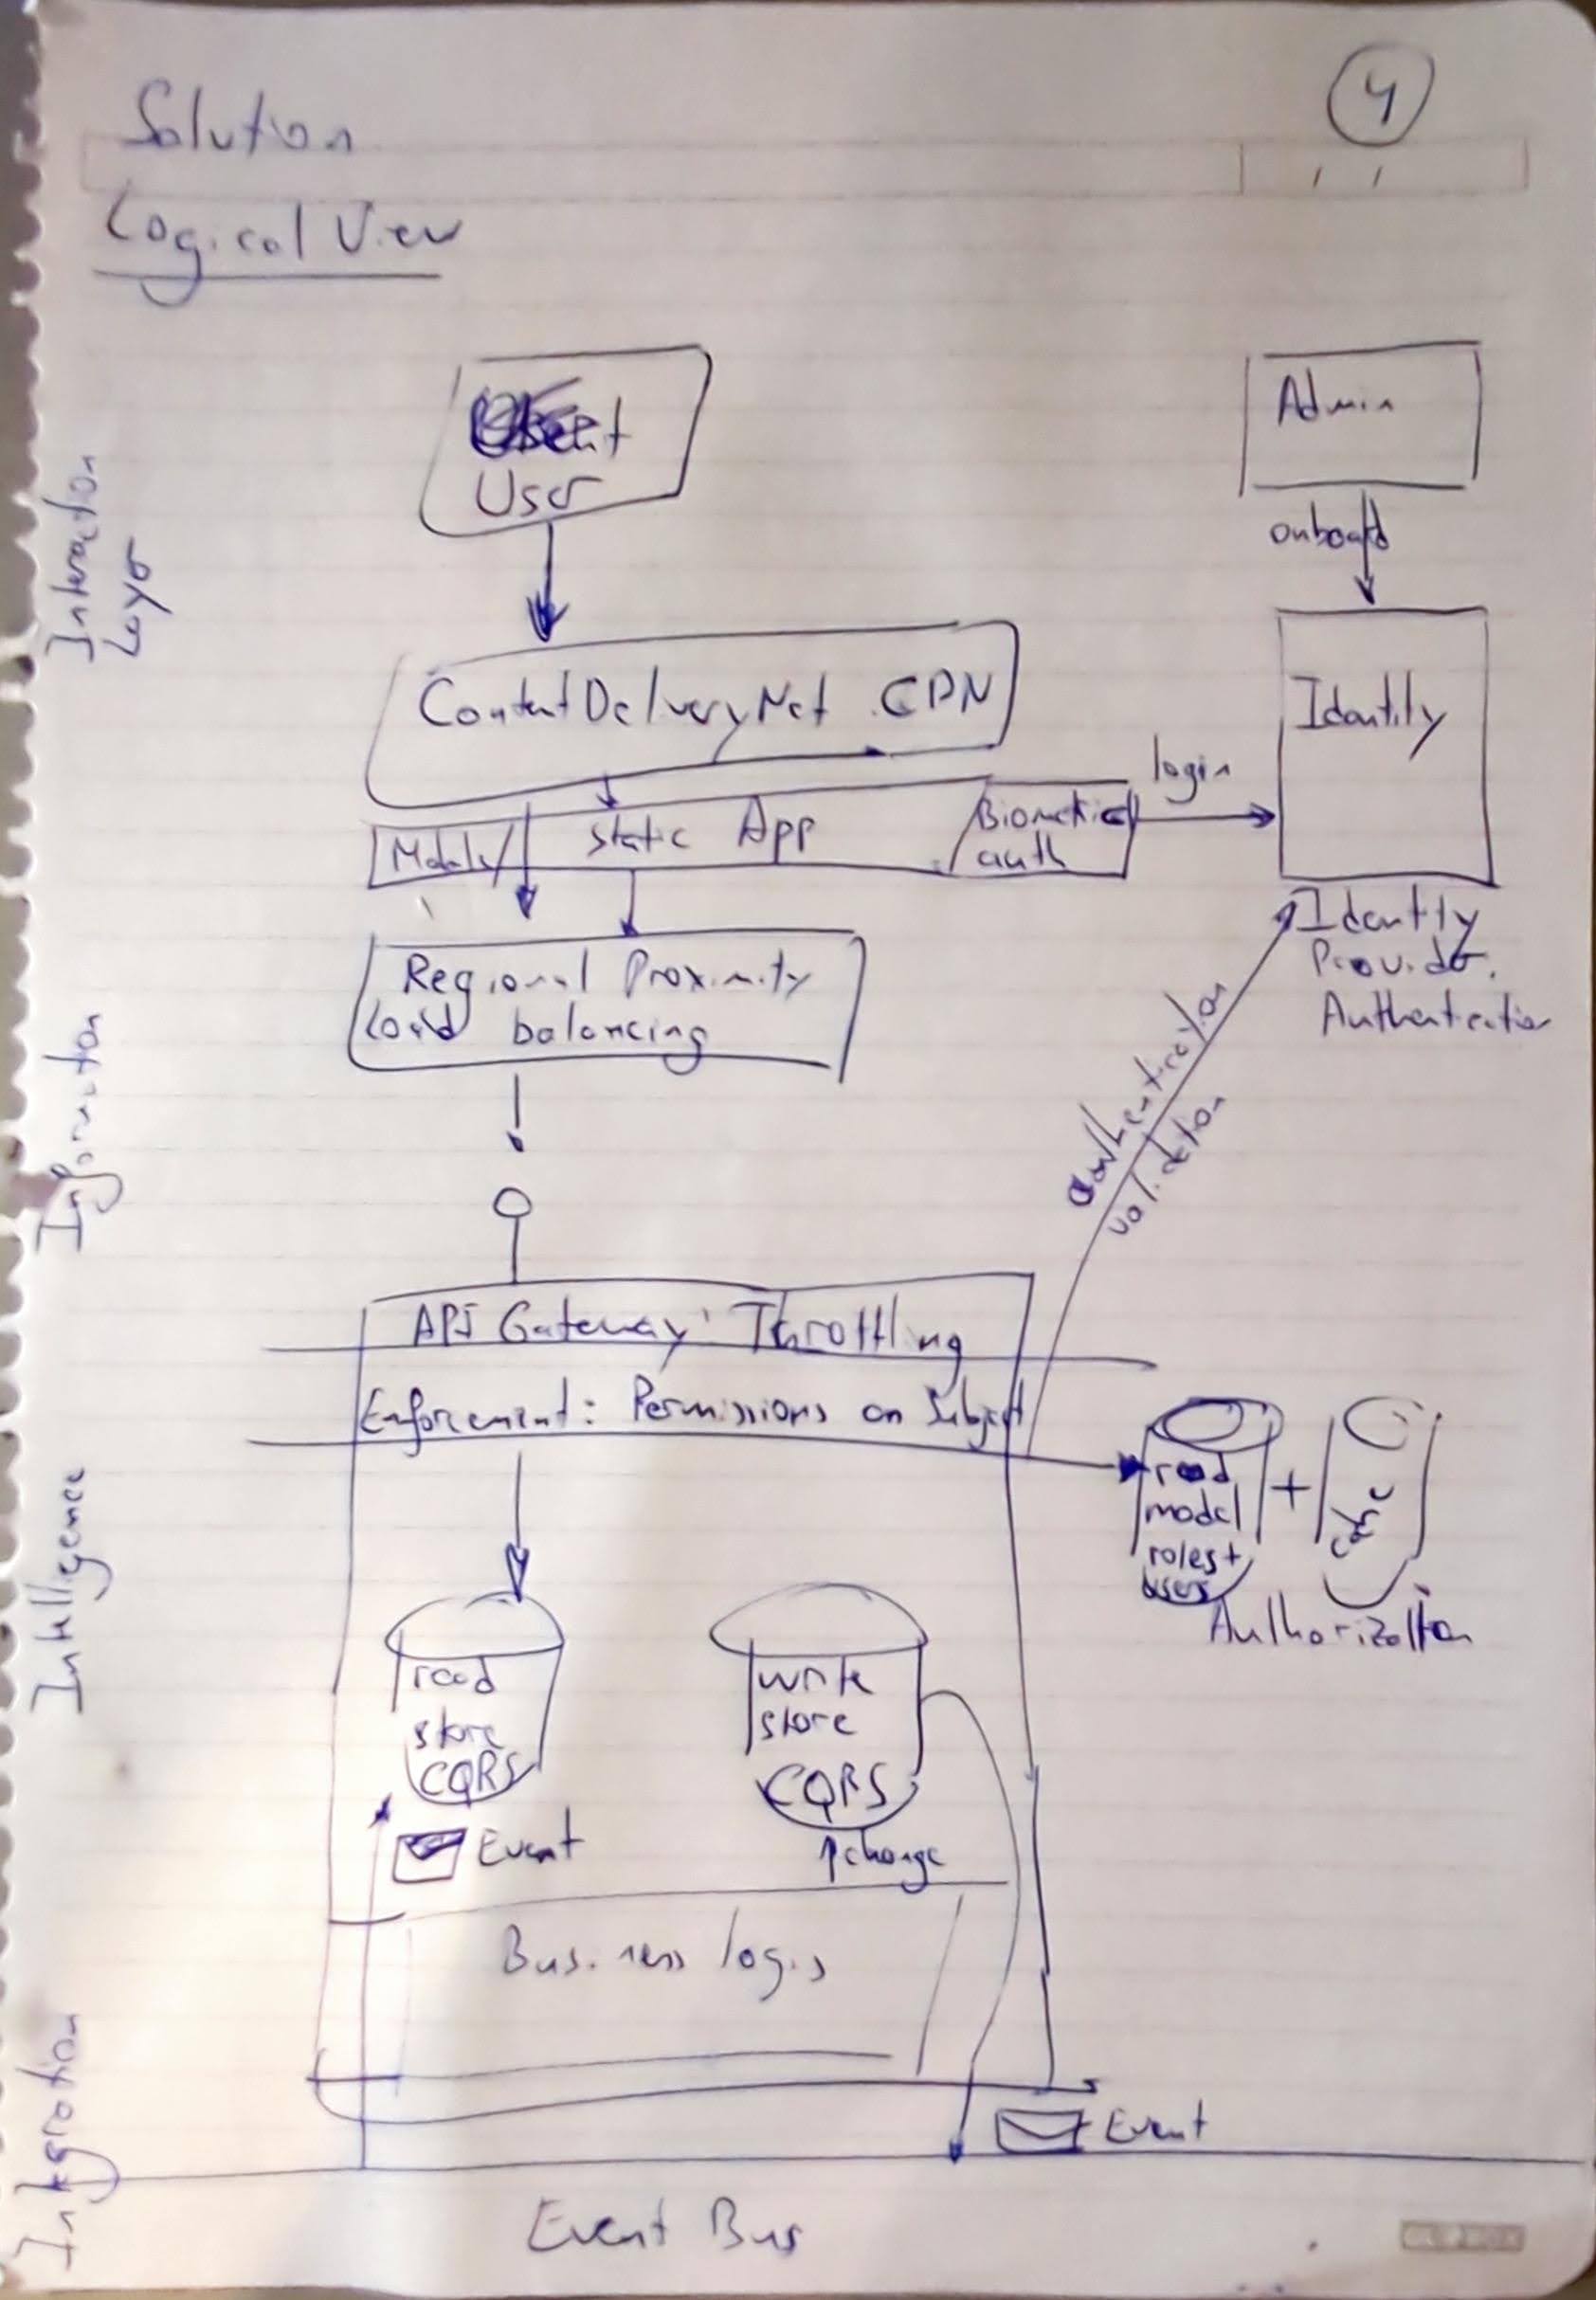 4
Solution
Logical View
Interaction
Layer
User
Admin
onboard
ContentDeliveryNet CDN
Identity
login
static App
Biometrical
auth
Identity
Provider.
Authentication
Regional Proximity
Load balancing
Information
authentication
validation
API Gateway: Throttling
Enforcement: Permissions on Subject
read
model
roles +
users
+
cache
Authorization
Intelligence
read
store
CQRS
write
store
CQRS
Event
change
Business logis
Integration
Event
Event Bus